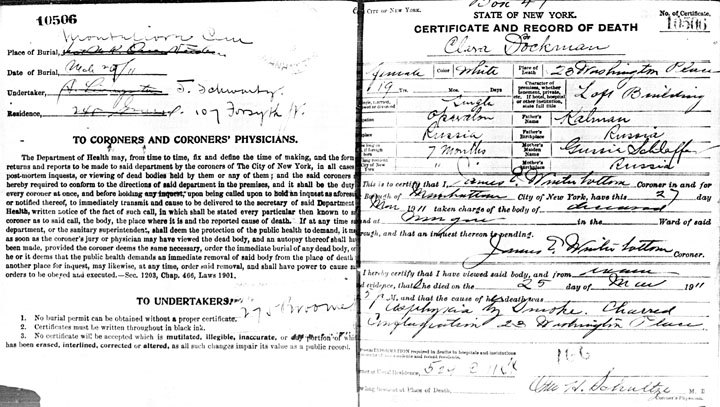 10506
Montefiore Cem
Place of Burial,
Date of Burial, Mch 28/11
Undertaker, J. Schwartz
Residence, 107 Forsyth St.
TO CORONERS AND CORONERS' PHYSICIANS.
The Department of Health may, from time to time, fix and define the time of making, and the form
returns and reports to be made to said department by the coroners of The City of New York, in all cases
post-mortem inquests, or viewing of dead bodies held by them or any of them; and the said coroners
hereby required to conform to the directions of said department in the premises, and it shall be the duty
every coroner at once, and before holding any inquest, upon being called upon to hold an inquest as aforesaid
or notified thereof, to immediately transmit and cause to be delivered to the secretary of said Department
Health, written notice of the fact of such call, in which shall be stated every particular then known to
coroner as to said call, the body, the place where it is and the reported cause of death. If at any time
department, or the sanitary superintendent, shall deem the protection of the public health to demand, it
as soon as the coroner's jury or physician may have viewed the dead body, and an autopsy thereof shall
been made, provided the coroner deems the same necessary, order the immediate burial of any dead body,
he or it deems that the public health demands an immediate removal of said body from the place of death
another place for inquest, may likewise, at any time, order said removal, and shall have power to cause
orders to be obeyed and executed.—Sec. 1203, Chap. 466, Laws 1901.
TO UNDERTAKERS:
275 Broome
1. No burial permit can be obtained without a proper certificate.
2. Certificates must be written throughout in black ink.
3. No certificate will be accepted which is mutilated, illegible, inaccurate, or any portion of
has been erased, interlined, corrected or altered, as all such changes impair its value as a public record.
Box 41
CITY OF NEW YORK.
STATE OF NEW YORK.
No. of Certificate.
CERTIFICATE AND RECORD OF DEATH
10506
Clara Dockman
female Color White Place of Death 23 Washington Place
19 Yrs. Mos. Days Character of premises, whether tenement, private, etc. If hotel, hospital or other institution, state full title Loft Building
Single
Operator Father's Name Kalman
Russia Father's Birthplace Russia
7 Months Mother's Maiden Name Gussie Schleff
Mother's Birthplace Russia
This is to certify that I, James E. Winterbottom Coroner in and for
Borough of Manhattan City of New York, have this 27 day
Mar 1911 taken charge of the body of deceased
found at Morgue in the Ward of said
Borough, and that an inquest thereon is pending.
James E. Winterbottom Coroner.
I hereby certify that I have viewed said body, and from
and evidence, that she died on the 25 day of Mar 1911
M., and that the cause of her death was
Asphyxia by Smoke. Charred
Conflagration 23 Washington Place
INFORMATION required in deaths in hospitals and institutions
Residence, 524 E 11 St
Otto H. Schultze M. D.
Coroner's Physician.